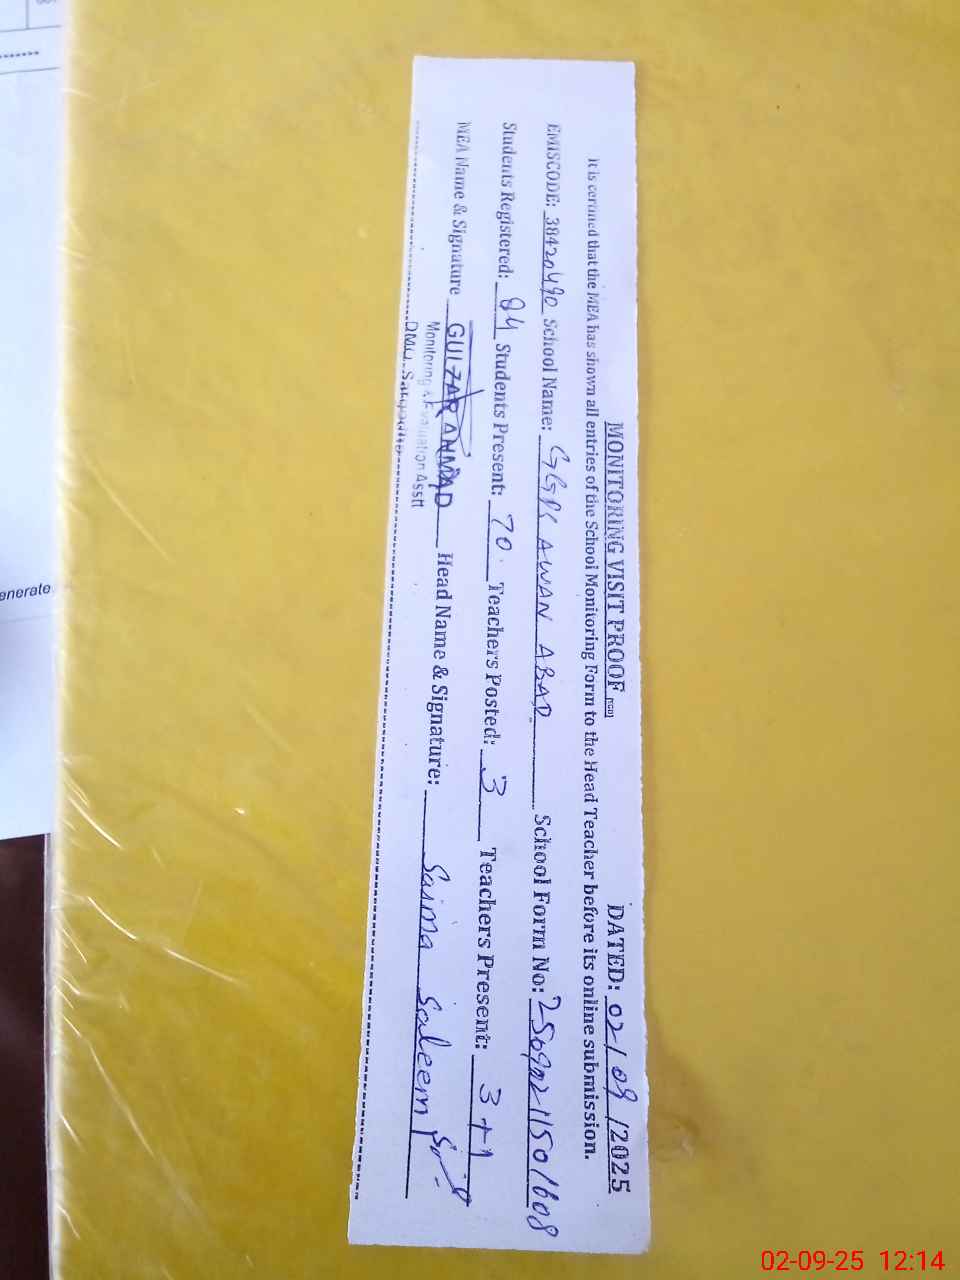 MONITORING VISIT PROOF DATED: 02/09/2025
It is certified that the MEA has shown all entries of the School Monitoring Form to the Head Teacher before its online submission.
EMISCODE: 38420490 School Name: GGPS AWAN ABAD School Form No: 25090211501608
Students Registered: 84 Students Present: 70 Teachers Posted: 3 Teachers Present: 3+1
MEA Name & Signature GULZAR AHMAD Head Name & Signature: Saima Saleem
Monitoring & Evaluation Asstt
DMO, Sargodha
enerate
02-09-25 12:14